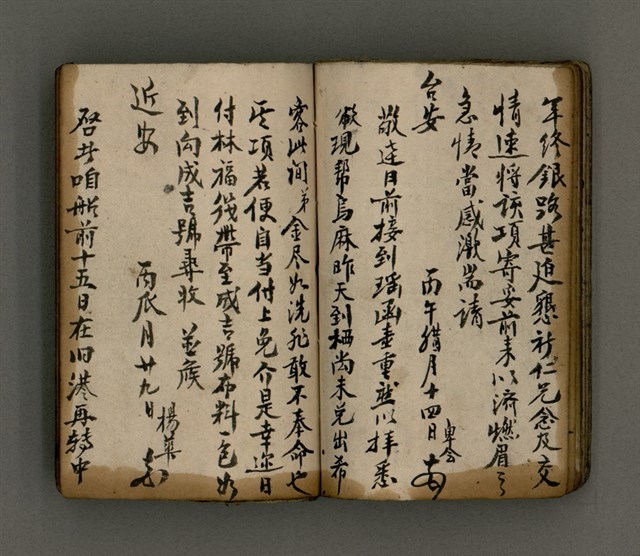 年終銀路甚迫懇祈仁兄念及交
情速將該項寄妥前來以濟燃眉之
急情當感激耑請
台安 丙午腊月十四日
敬達日前接到瑶函垂重歷以拝悉
獻現幫烏麻昨天到栖尚未兑出希
容此間弟金尽如洗非敢不奉命也
其項若便自当付上免介是幸迩日
付林福篾帶至成吉號布料一色如
到向成吉號尋收 並候
近安 丙辰月廿九日 楊
啓者咱船前十五日在旧港再轉中